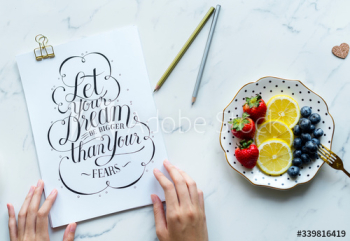 Let
Your
Dream
BE BIGGER
than Your
FEARS
© 339816419